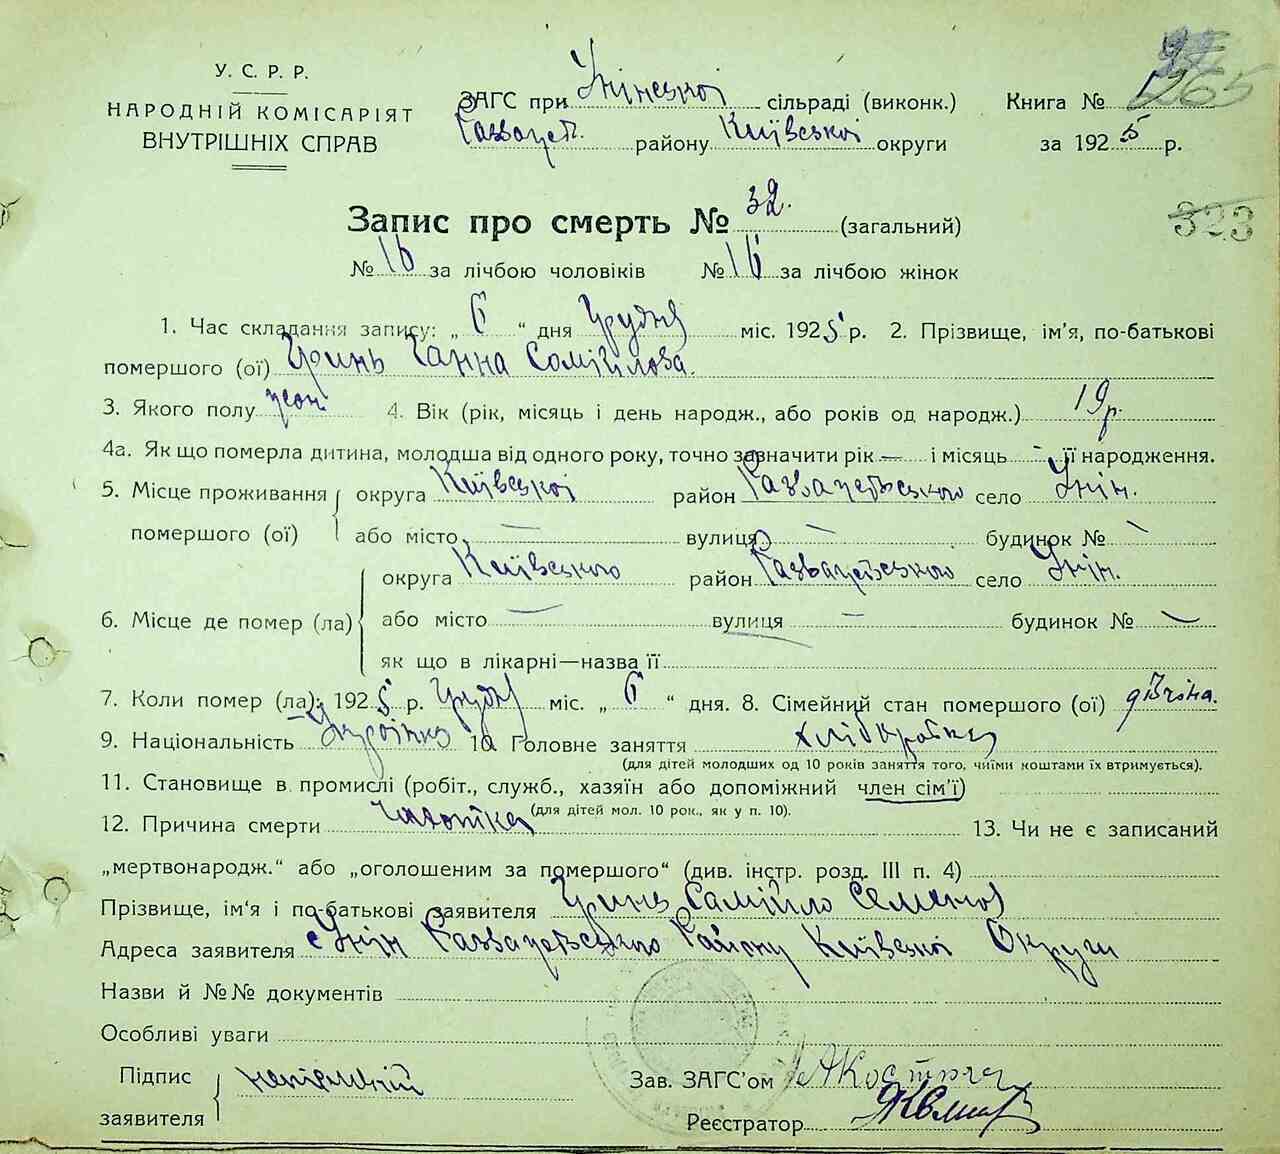 У. С. Р. Р.
НАРОДНІЙ КОМІСАРІЯТ
ВНУТРІШНІХ СПРАВ
ЗАГС при Унінської сільраді (виконк.)
району Київської округи
Книга №
за 1925 р.
265
323
Запис про смерть № 32. (загальний)
№ 16 за лічбою чоловіків № 16 за лічбою жінок
1. Час складання запису: „ 6 “ дня Грудня міс. 1925 р. 2. Прізвище, ім'я, по-батькові
помершого (ої) Гринь Ганна Сомійлова.
3. Якого полу жон. 4. Вік (рік, місяць і день народж., або років од народж.) 19 р.
4а. Як що померла дитина, молодша від одного року, точно зазначити рік — і місяць - її народження.
5. Місце проживання округа Київської район село Унін.
помершого (ої) або місто — вулиця — будинок № —
округа Київського район село Унін.
6. Місце де помер (ла) або місто — вулиця — будинок № —
як що в лікарні—назва її
7. Коли помер (ла): 1925 р. Грудня міс. „ 6 “ дня. 8. Сімейний стан помершого (ої) дівчина.
9. Національність Українка 10. Головне заняття
(для дітей молодших од 10 років заняття того, чиїми коштами їх втримується).
11. Становище в промислі (робіт., служб., хазяїн або допоміжний член сім'ї)
(для дітей мол. 10 рок., як у п. 10).
12. Причина смерти 13. Чи не є записаний
„мертвонародж.“ або „оголошеним за помершого“ (див. інстр. розд. III п. 4)
Прізвище, ім'я і по-батькові заявителя Гринь Самійло Семенов
Адреса заявителя с Унін Району Київської Округи
Назви й №№ документів
Особливі уваги
Підпис
заявителя
Зав. ЗАГС'ом
Реєстратор